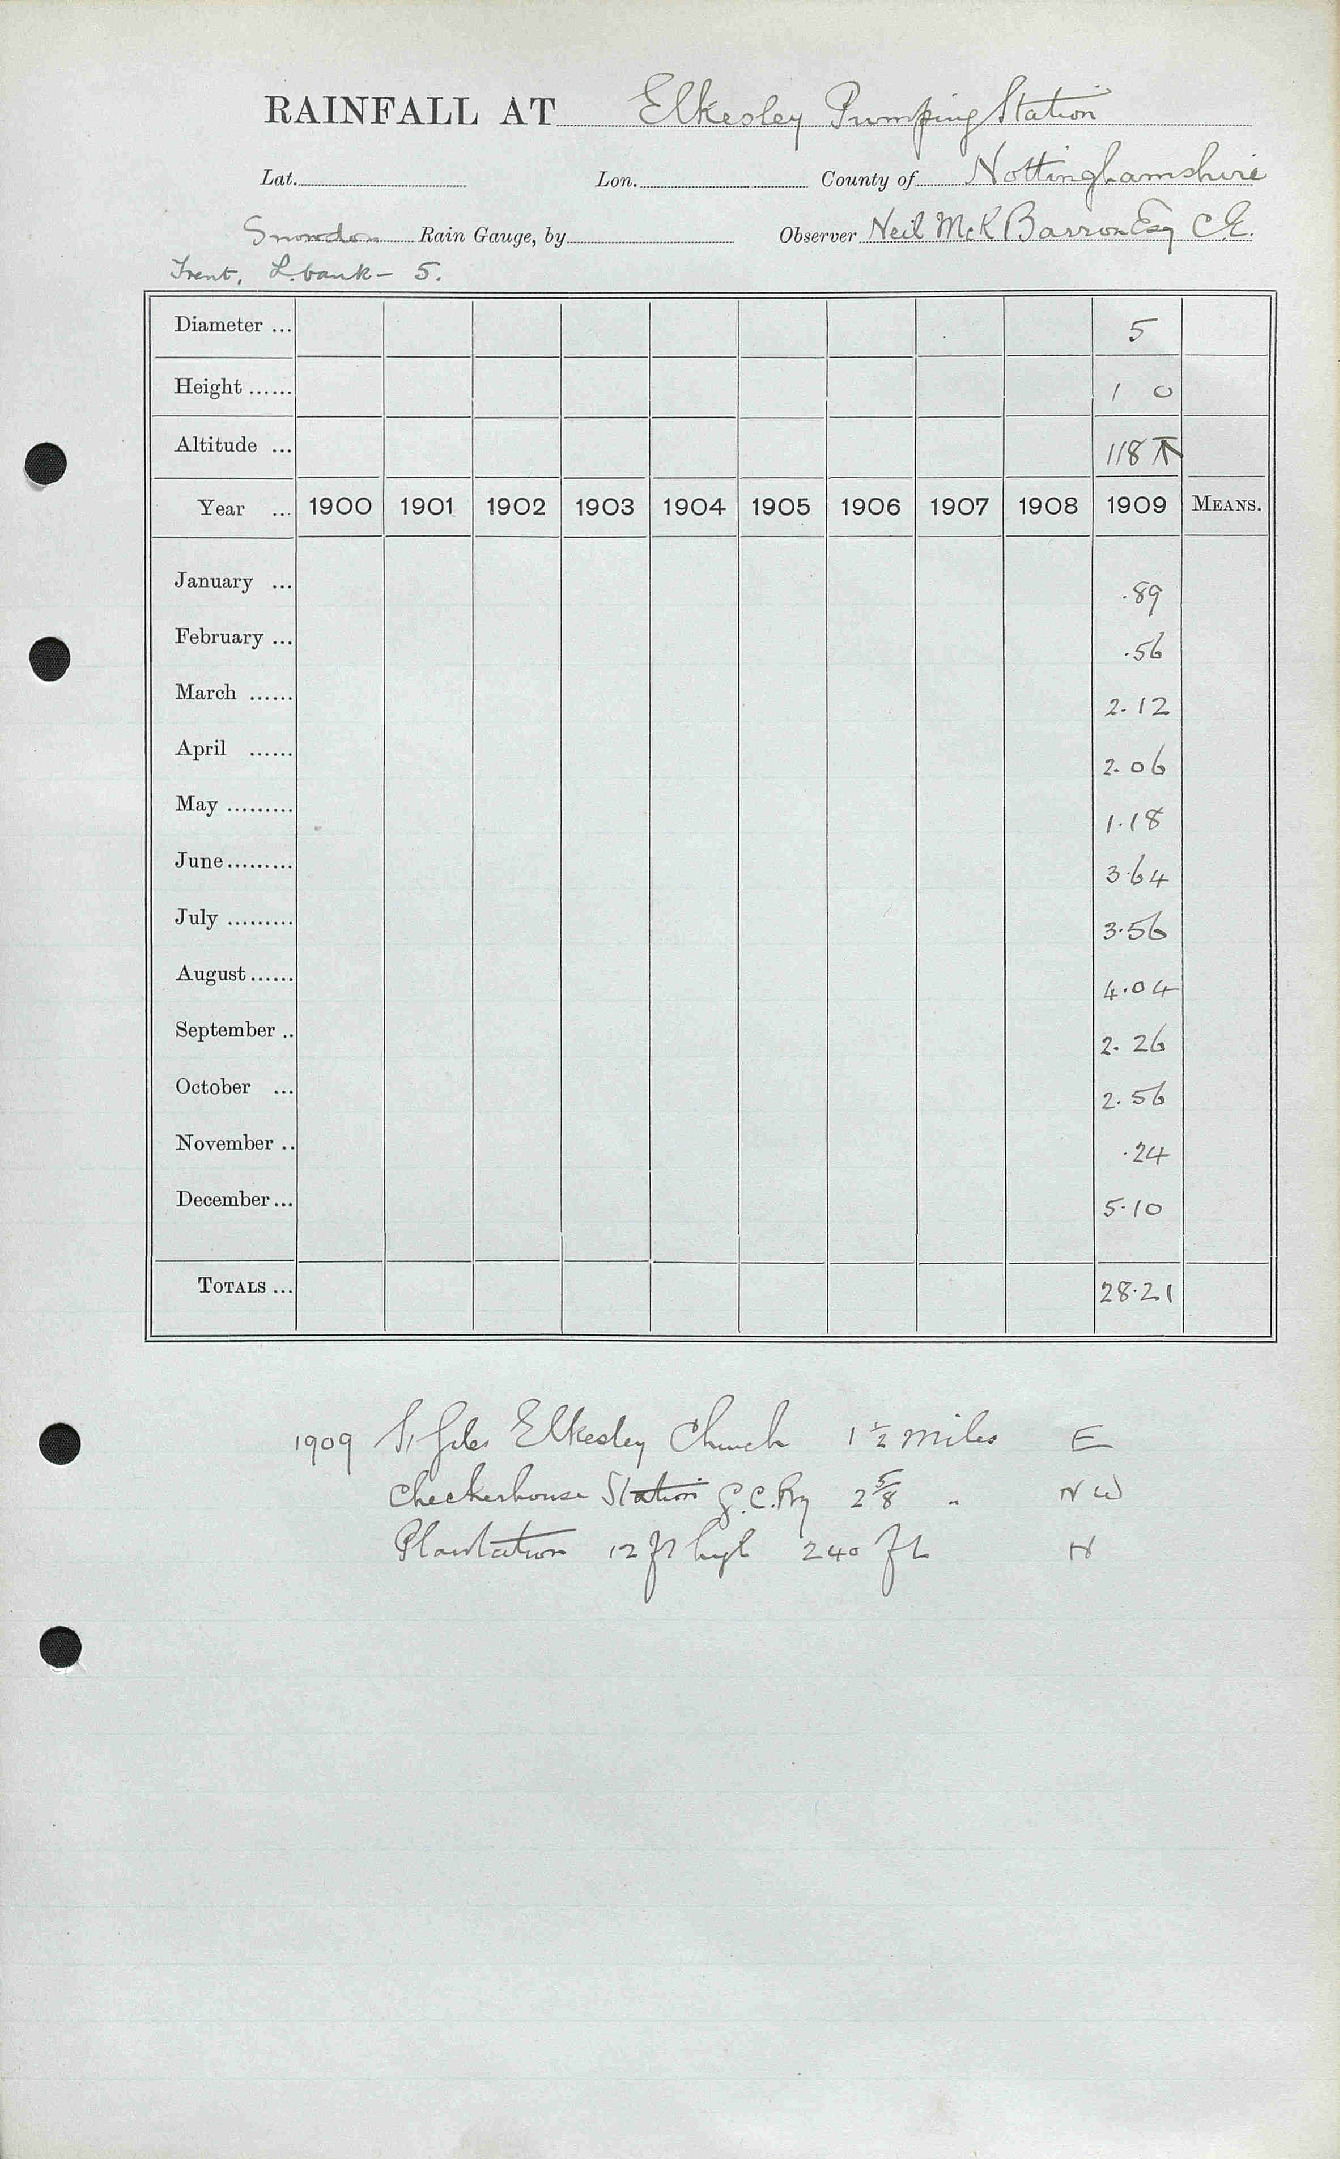 RAINFALL AT Elkesley Pumping Station
Lat. Lon. County of Nottinghamshire
Snowdon Rain Gauge, by Observer Neil McK Barron Esq C.E.
Trent, L. bank - 5.
Diameter ... 5
Height ...... 1 0
Altitude ... 118
Year ... 1900 1901 1902 1903 1904 1905 1906 1907 1908 1909 MEANS.
January ... .89
February ... .56
March ...... 2.12
April ...... 2.06
May ......... 1.18
June......... 3.64
July ......... 3.56
August...... 4.04
September .. 2.26
October ... 2.56
November .. .24
December... 5.10
TOTALS ... 28.21
1909 St Giles Elkesley Church 1 1/2 miles E
Checkerhouse Station G.C.Ry 2 5/8 " NW
Plantation 12 ft high 240 ft N